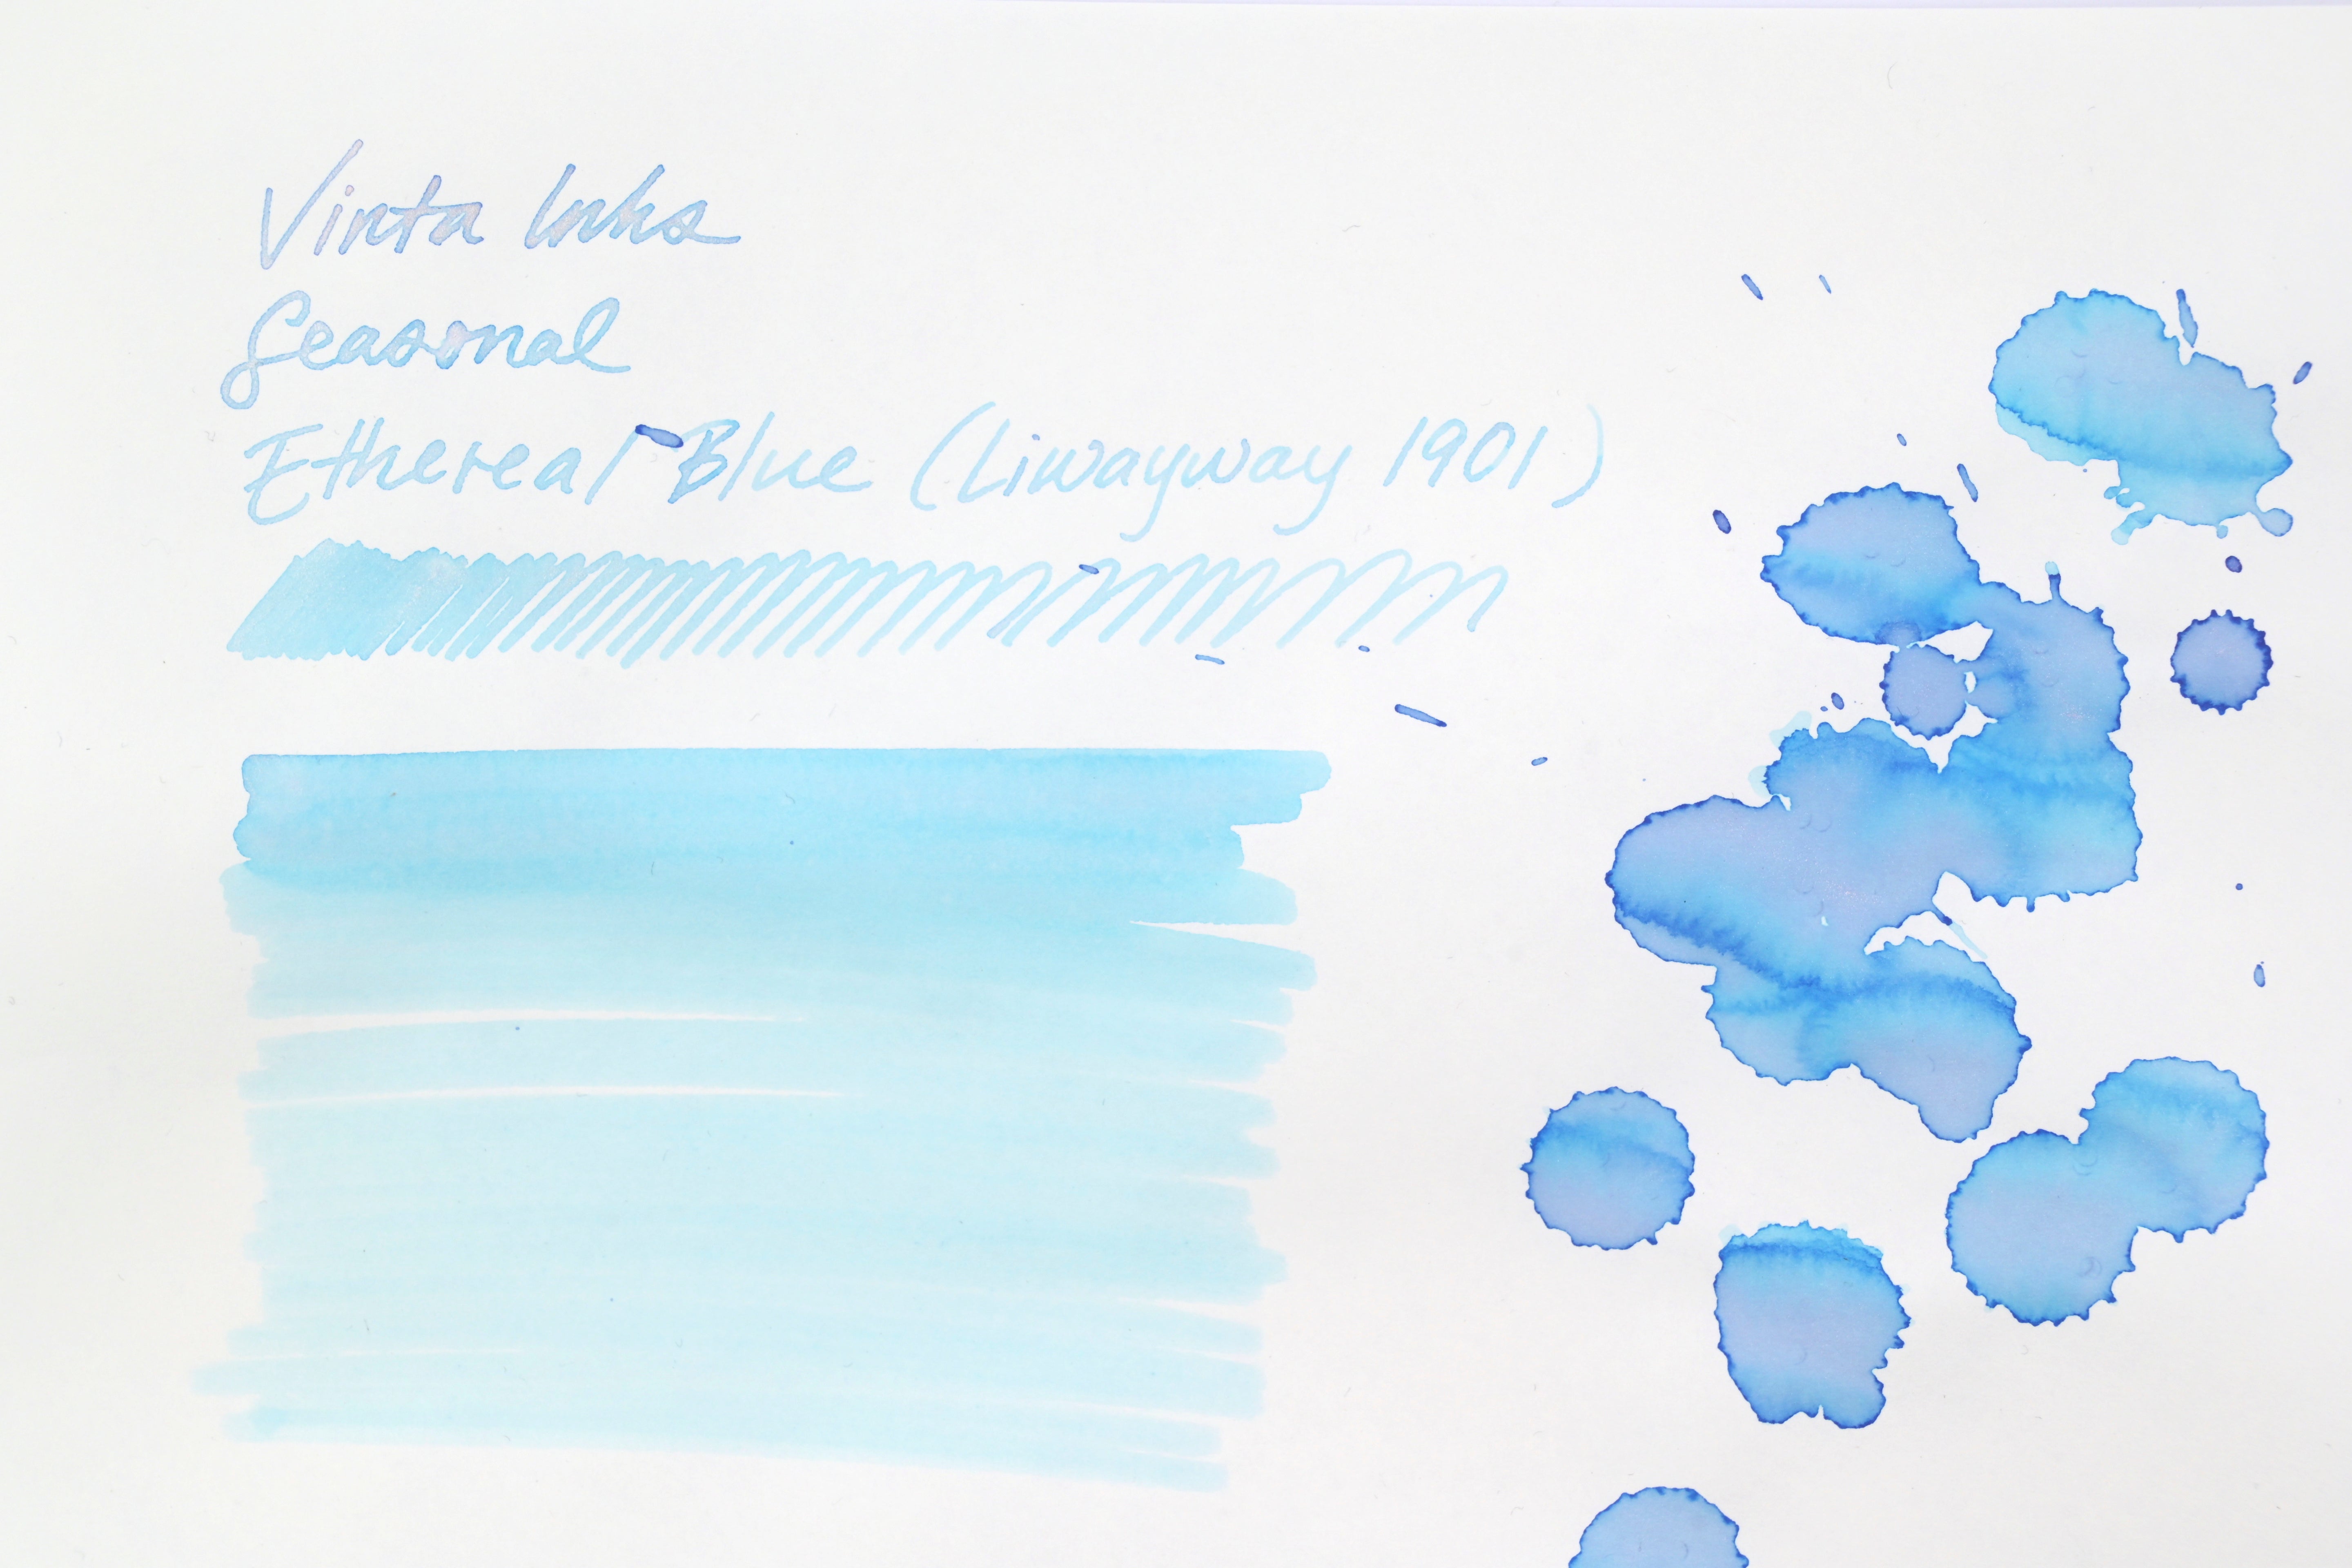 Vinta Inks
Seasonal
Ethereal Blue (Liwayway 1901)